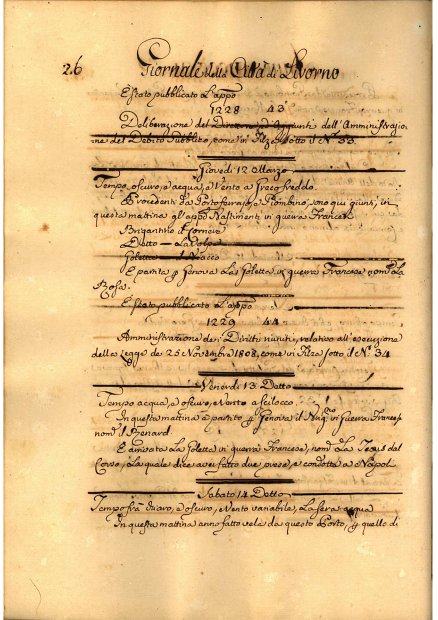 26 Giornale della Città di Livorno
È stato pubblicato l'appo
1228 43
Deliberazione del Direttore ed Aggiunti dell'Amministrazio
ne del Debito Pubblico, come in Filza sotto il N.° 33.
Giovedì 12 Marzo
Tempo oscuro, e acqua, e Vento a Greco freddo.
Provenienti da Portoferrajo, e Piombino, sono qui giunti, in
questa mattina gl'appi Bastimenti in guerra Francesi
Brigantino il
Detto — La Volpe
Goletta —
È partita p Genova La Goletta in guerra Francese nom.ta La
Rosa.
È stato pubblicato l'appo
1229 44
Amministrazione de' Diritti riuniti, relativo all'esecuzione
della Legge de 25 Novembre 1808, come in Filza sotto il N.° 34
Venerdì 13 Detto
Tempo acqua, e oscuro, e Vento a Scilocco
In questa mattina è partito p Genova il in guerra Francese
nom.to il Renard
È arrivata La Goletta in guerra Francese, nom.ta La
Corso, La quale dice aver fatto due prese, e condotte a Napoli
Sabato 14 Detto
Tempo fra chiaro, e oscuro, e Vento variabile, La sera acqua
In questa mattina anno fatto vela da questo Porto, p quello di